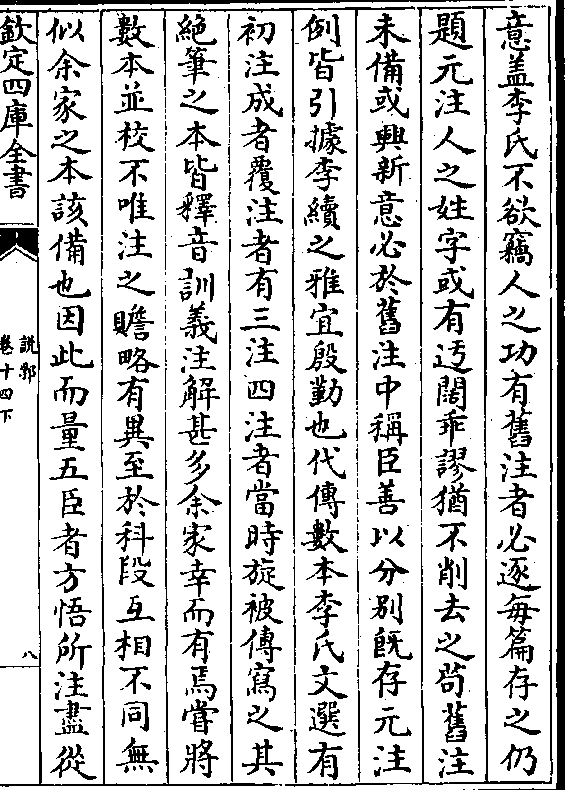 意盖李氏不欲竊人之功有舊注者必逐每篇存之仍
題元注人之姓字或有迃闊乖謬猶不削去之茍舊注
未備或興新意必於舊注中稱臣善以分别旣存元注
例皆引據李續之雅宜殷勤也代傳數本李氏文選有
初注成者覆注者有三注四注者當時旋被傳寫之其
絶筆之本皆釋音訓義注解甚多余家幸而有焉嘗將
數本並校不唯注之贍略有異至於科段互相不同無
似余家之本該備也因此而量五臣者方悟所注盡從
欽定四庫全書
說郛
卷十四下
八